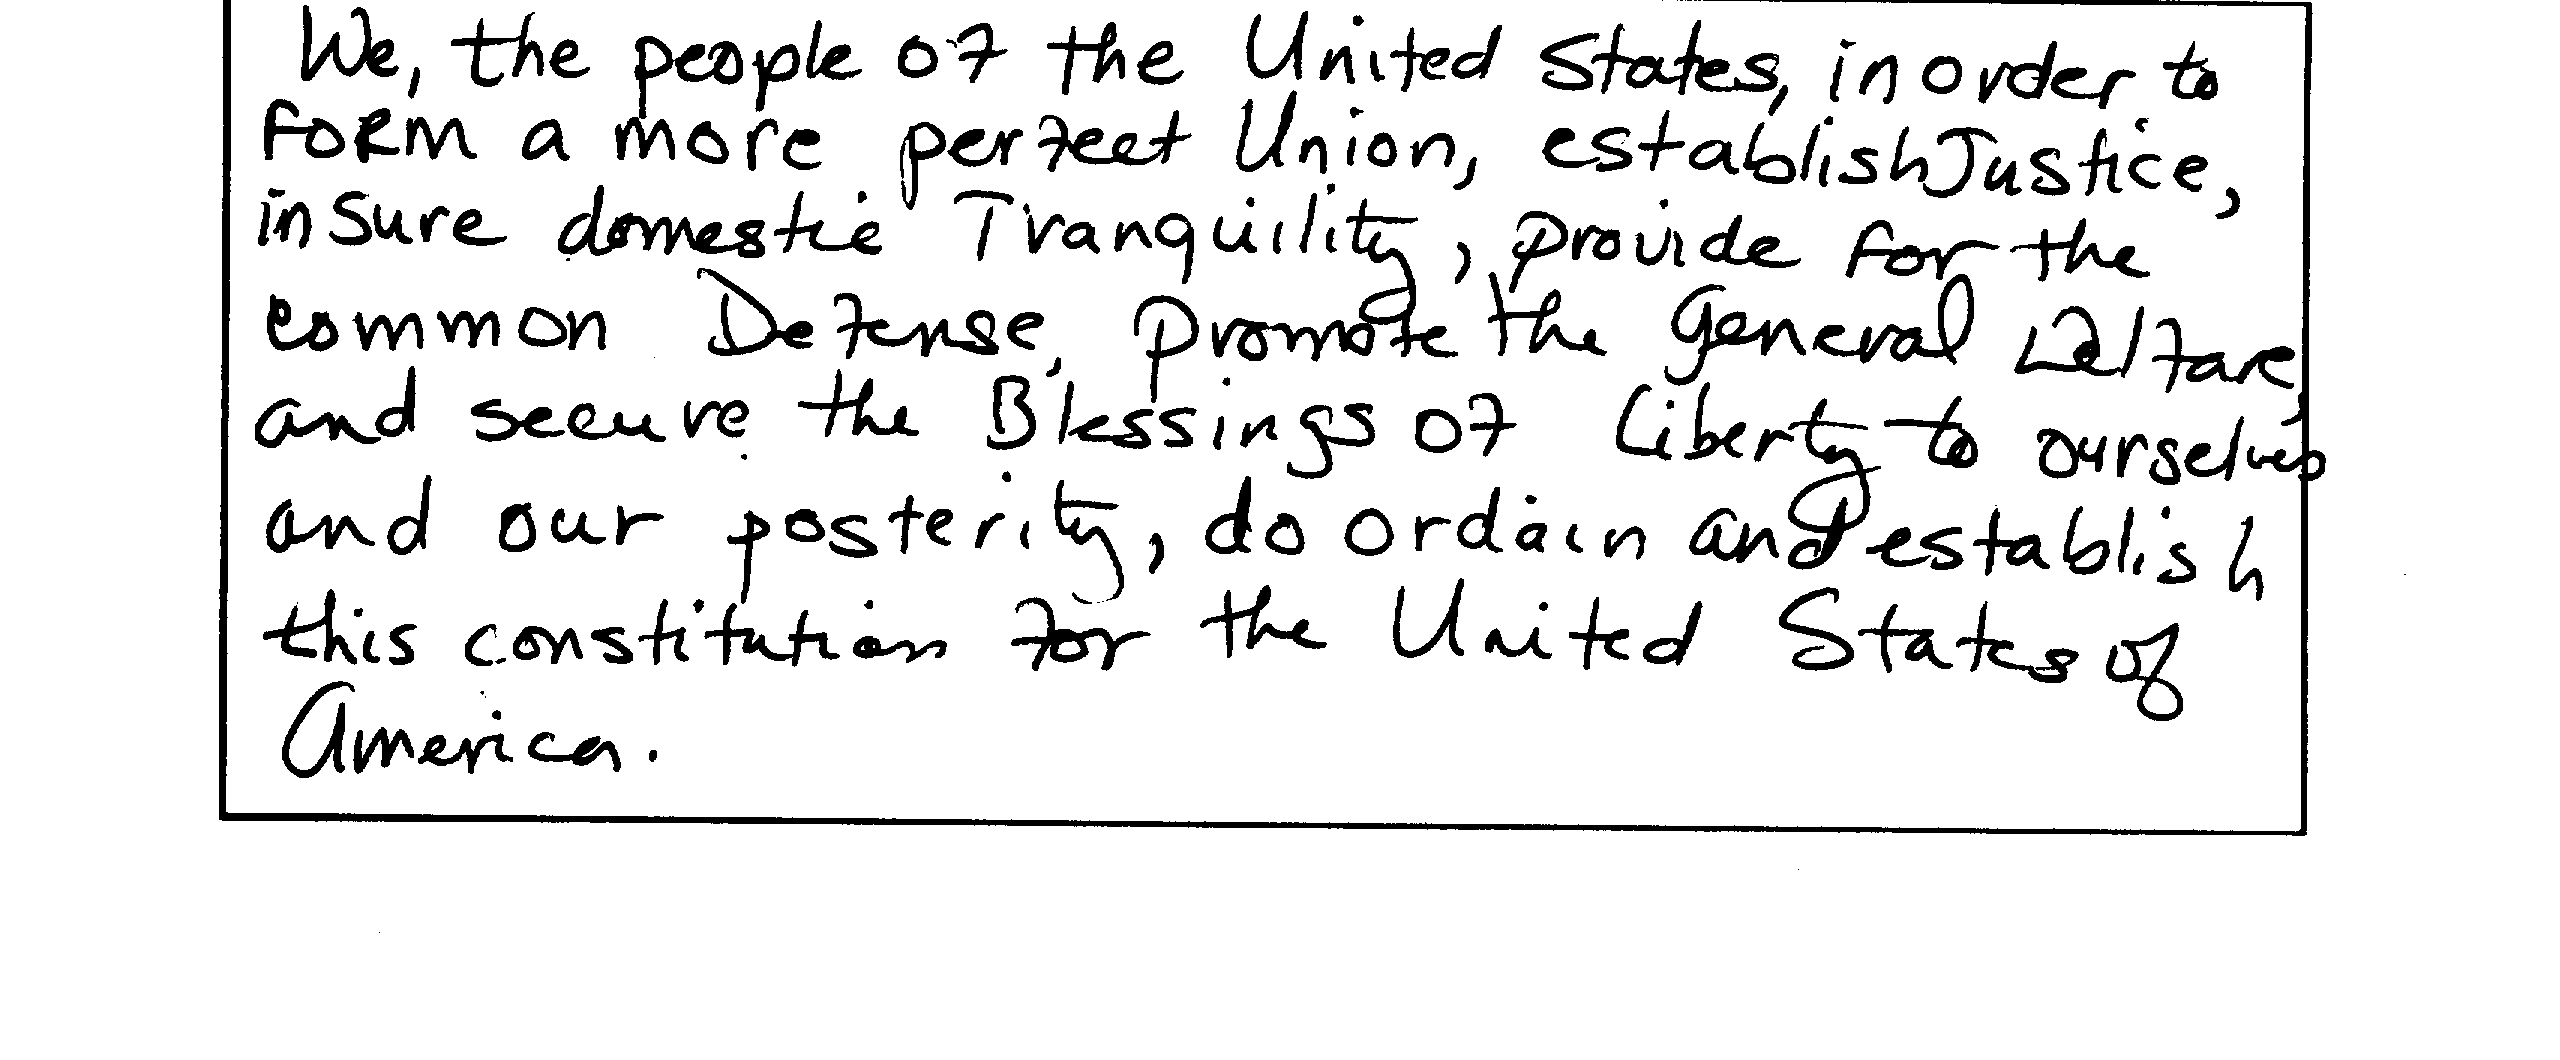 We, the people of the United States, in order to
form a more perfect Union, establish Justice,
insure domestic Tranquility, provide for the
common Defense, promote the General Welfare,
and secure the Blessings of Liberty to ourselves
and our posterity, do ordain and establish
this constitution for the United States of
America.